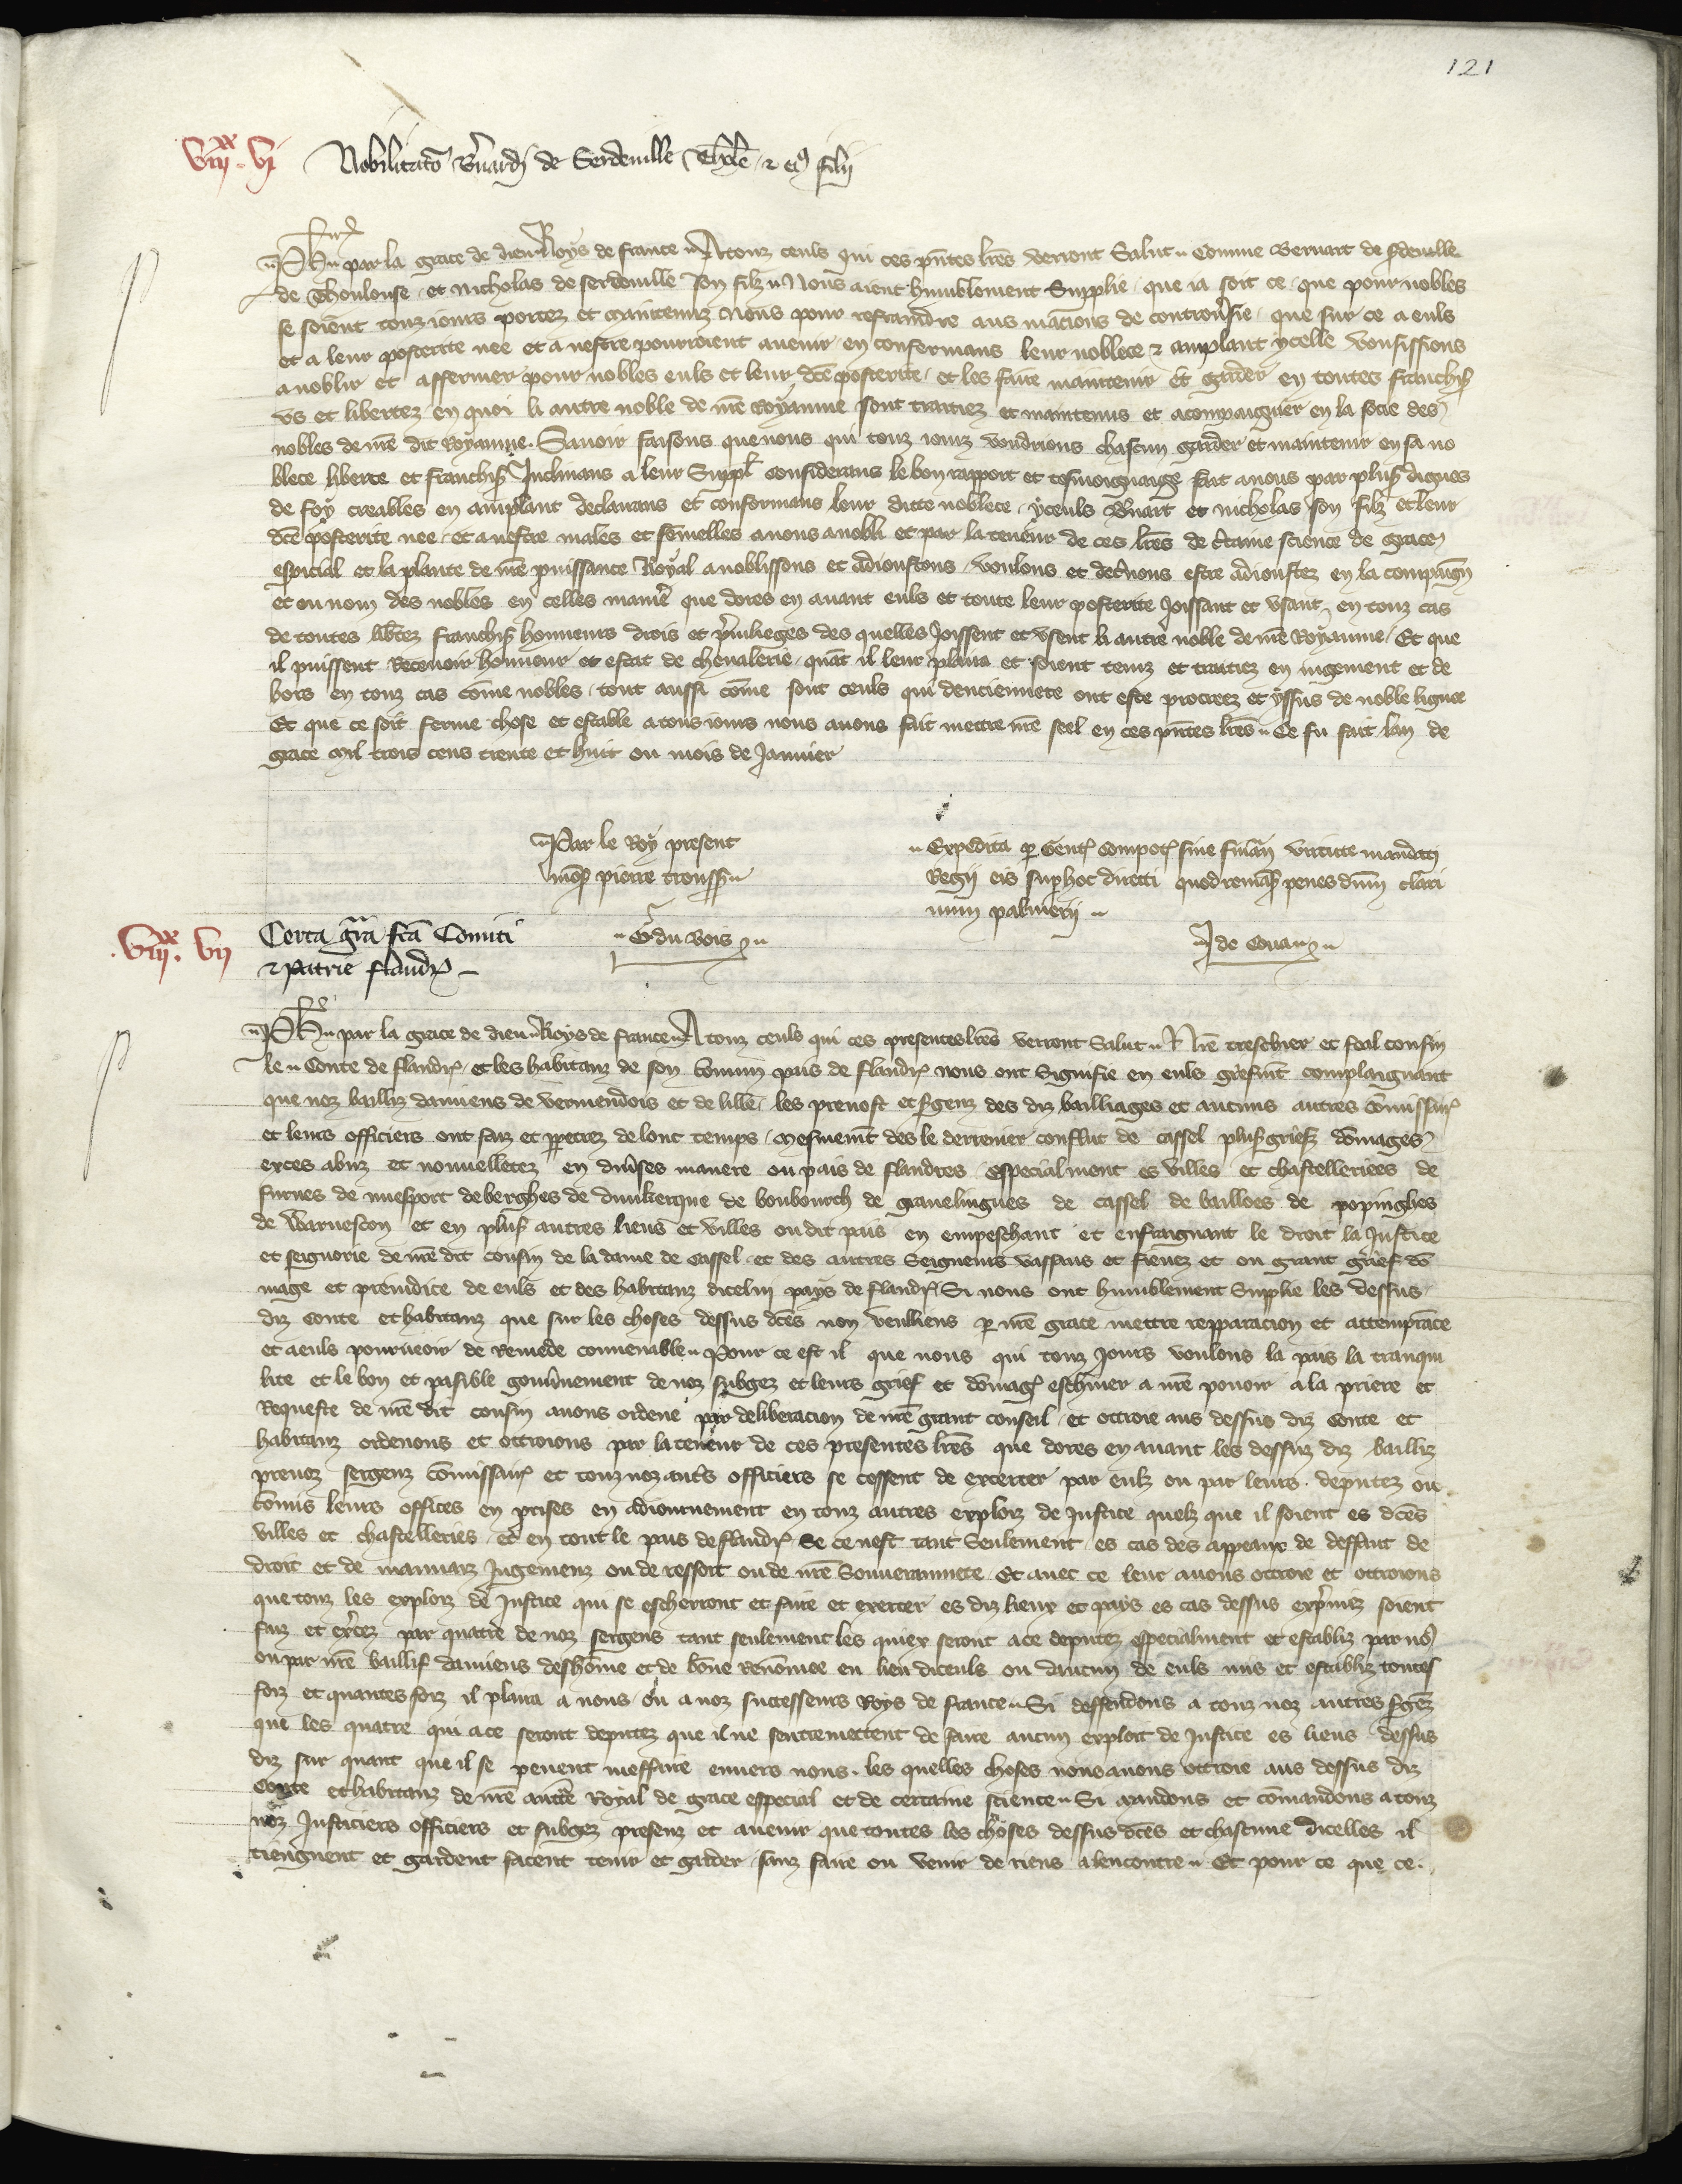 121
VIIIxx. VI Nobilitatio Bernardi de Serdeuille Tholose et eius filii
Ph par la grace de dieu Roys de france A touz ceuls qui ces presentes lettres verront Salut Comme Bernart de serdeuille
de Thoulouse et Nicholas de serdeuille son filz Nous aient humblement Supplie que ia soit ce que pour nobles
se soient touz iours portez et maintenuz Nous pour restraindre aus macions de controuersie que sur ce a euls
et a leur posterite nee et a nestre pourroient auenir en confermans leur noblece et ampliant ycelle voussissions
anoblir et affermer pour nobles euls et leur dicte posterite et les faire maintenir et garder en toutes franchises
us et libertez en quoi li autre noble de nostre Royaume sont traitiez et maintenus et acompaignier en la socie des
nobles de nostre dit Royaume. Sauoir faisons que nous qui touz iourz voudrions chascun garder et maintenir en sa no
blece liberte et franchise Inclinans a leur Supplicacion considerans le bon rapport et tesmoignaige fait a nous par pluseurs dignes
de foy creables en ampliant declarans et confermans leur ditte noblece yceuls Bernart et nicholas son filz et leur
dicte posterite nee et a nestre males et femelles auons anobli et par la teneur de ces lettres de certaine science de grace
espicial et la plante de nostre puissance Royal anoblissons et adioustons voulons et decernons estre adioustez en la compaignie
et ou nom des nobles en telles maniere que dores en auant euls et toute leur posterite Joissant et usant en touz cas
de toutes libertez franchises honneurs drois et priuileges des quelles Joissent et usent li autre noble de nostre Royaume Et que
il puissent Receuoir honneur et estat de cheualerie quant il leur plaira et soient tenuz et traitiez en iugement et de
hors en touz cas comme nobles tout aussi comme sont ceuls qui denciennete ont este procreez et yssus de noble lignee
Et que ce soit ferme chose et estable a tous iours nous auons fait mettre nostre seel en ces presentes lettres Ce fu fait lan de
grace mil trois cens trente et huit ou mois de Januier
Par le Roy present
mons pierre troussel
Expedita per Gentes compotorum sine financia virtute mandati
Regii eis super hoc directi quod remansit penes dominum clari
num palmerii
G du bois
J de Coua
VIIIxx. VII Certa gracia facta Comiti
et Patrie flandrie
Ph par la grace de dieu Roys de france A touz ceuls qui ces presentes lettres verront Salut Nostre treschier et feal cousin
le Conte de flandres et les habitanz de son commun pais de flandres nous ont Signifie en euls griefment complaignant
que noz bailliz damiens de vermendois et de lille les preuost et sergenz des diz bailliages et aucuns autres commissaires
et leurs officiers ont faiz et perpetrez de lonc temps mesmement des le derrenier conflict de cassel pluseurs griefz domages
exces abuz et nouuelletez en diuerses maniere ou pais de flandres especialment es villes et chastelleriees de
furnes de nuefport de berghes de dunkerque de boubourch de grauelingues de cassel de bailloes de popinghes
de Warneston et en pluseurs autres lieus et villes ou dit pais en empeschant et enfraignant le droit la Justice
et seignorie de nostre dit cousin de la dame de Cassel et des autres Seigneurs vassaus et fieuez et ou grant grief do
mage et preiudice de euls et des habitanz dicelui pays de flandres Si nous ont humblement Supplie les dessus
diz conte et habitanz que sur les choses dessus dictes nou veulliens par nostre grace mettre repparacion et attemprance
et a euls pourueoir de Remede conuenable Pour ce est il que nous qui touz Jours voulons la pais la tranqui
lite et le bon et paisible gouuernement de noz subgez et leurs grief et domages eschiuer a nostre pouoir a la priere et
Requeste de nostre dit cousin auons ordene par deliberacion de nostre grant conseil et ottroie aus dessus diz conte et
habitanz ordenons et ottroions par la teneur de ces presentes lettres que dores en auant les dessuz diz bailliz
preuoz sergenz commissaires et touz noz autres officiers se cessent de excercer par eulz ou par leurs deputez ou
commis leurs offices en prises en adiournement en touz autres exploiz de Justice quelz que il soient es dictes
villes et chastelleries et en tout le pais de flandres Se ce nest tant Seulement es cas des appeaux de deffaut de
droit et de mauuaiz Jugemenz ou de ressort ou de nostre Souuerainnete Et auec ce leur auons ottroie et ottroions
que touz les exploiz de Justice qui se escherront et faire et exercer es diz lieux et pays es cas dessus exprimez soient
faiz et exercez par quatre de noz sergens tant seulement les quiex seront a ce deputez especialment et establiz par nous
ou par nostre baillif damiens deshomme et de bonne Renommee en lieu diceuls ou daucun de euls mis et establiz toutes
foiz et quantes foiz il plaira a nous ou a noz successeurs Roys de france Si deffendons a touz noz autres sergenz
que les quatre qui a ce seront deputez que il ne sentremettent de faire aucun exploit de Justice es lieus dessus
diz sur quant que il se peuent meffaire enuers nous. les quelles choses nous auons ottroie aus dessus diz
Conte et habitanz de nostre auctorite Royal de grace especial et de certaine science Si mandons et comandons a touz
noz Justiciers officiers et subgez presenz et auenir que toutes les choses dessus dictes et chascune dicelles il
tiengnent et gardent facent tenir et garder sanz faire ou venir de riens a lencontre Et pour ce que ce